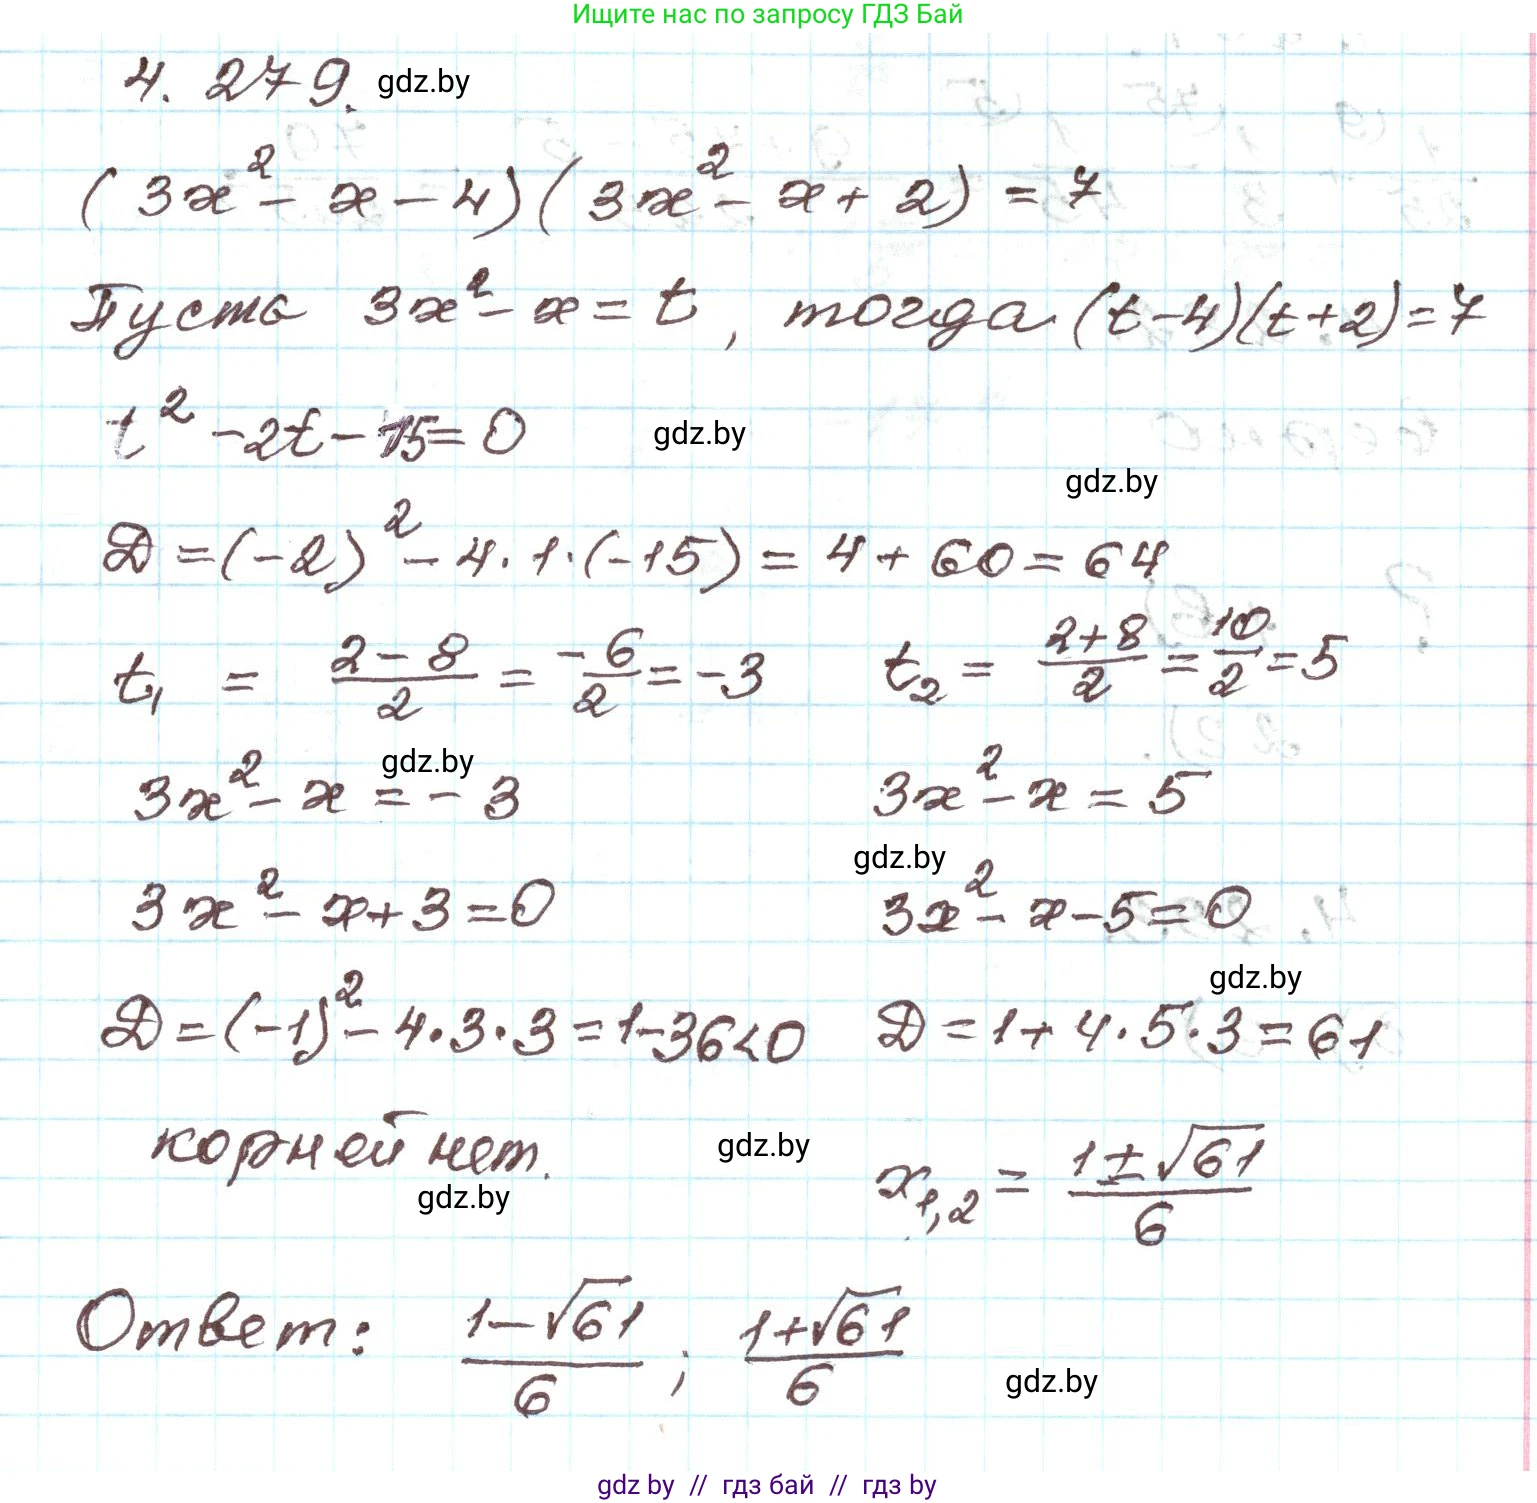 Ищите нас по запросу ГДЗ Бай
4. 279. gdz.by
(3x² - x - 4)(3x² - x + 2) = 7
Пусть 3x² - x = t, тогда (t-4)(t+2)=7
t² - 2t - 15 = 0 gdz.by
gdz.by
D = (-2)² - 4·1·(-15) = 4 + 60 = 64
t₁ = (2-8)/2 = -6/2 = -3 t₂ = (2+8)/2 = 10/2 = 5
gdz.by
3x² - x = -3 3x² - x = 5
gdz.by
3x² - x + 3 = 0 3x² - x - 5 = 0
gdz.by
D = (-1)² - 4·3·3 = 1-36<0 D = 1 + 4·5·3 = 61
корней нет. gdz.by x₁,₂ = (1±√61)/6
gdz.by
Ответ: (1-√61)/6 ; (1+√61)/6
gdz.by
gdz by // гдз бай // гдз by